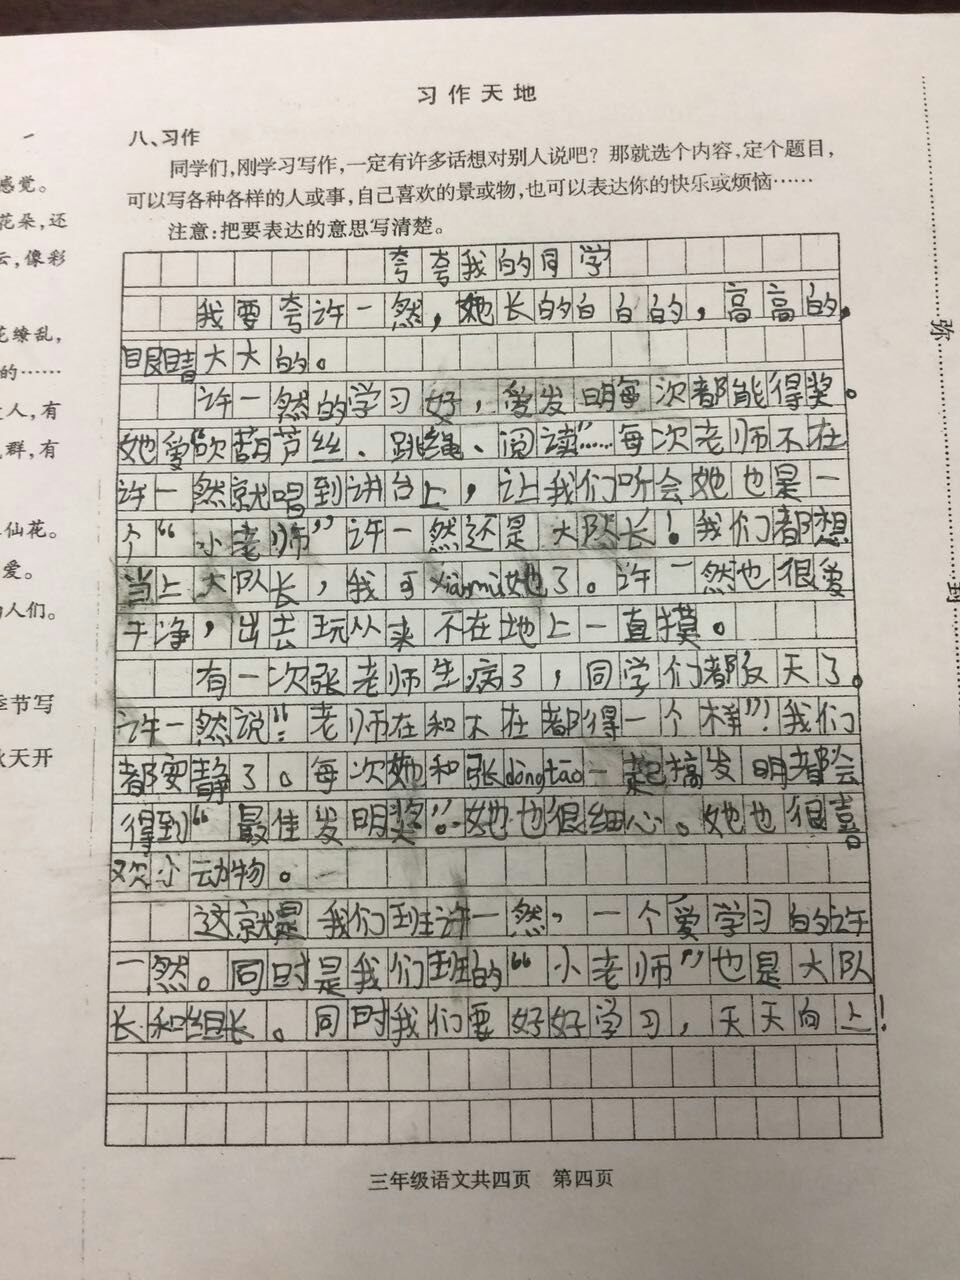 习作天地
八、习作
同学们,刚学习写作,一定有许多话想对别人说吧？那就选个内容,定个题目,
可以写各种各样的人或事,自己喜欢的景或物,也可以表达你的快乐或烦恼……
注意:把要表达的意思写清楚。
夸夸我的同学
我要夸许一然，她长的白白的，高高的，
眼睛大大的。
许一然的学习好，爱发明每次都能得奖。
她爱“吹葫芦丝、跳绳、阅读”……每次老师不在
许一然就唱到讲台上，让我们听会她也是一
个“小老师”许一然还是大队长！我们都想
当上大队长，我可xiànmù她了。许一然也很爱
干净，出去玩从来不在地上一直摸。
有一次张老师生病了，同学们都反天了。
许一然说：“老师在和不在都得一个样”！我们
都安静了。每次她和张dōngtāo一起搞发明都会
得到“最佳发明奖”。她也很细心。她也很喜
欢小动物。
这就是我们班许一然，一个爱学习的许
一然。同时是我们班的“小老师”也是大队
长和组长。同时我们要好好学习，天天向上！
三年级语文共四页　第四页
感觉。
花朵,还
云,像彩
花缭乱,
的……
人,有
群,有
仙花。
爱。
的人们。
季节写
秋天开
弥
封